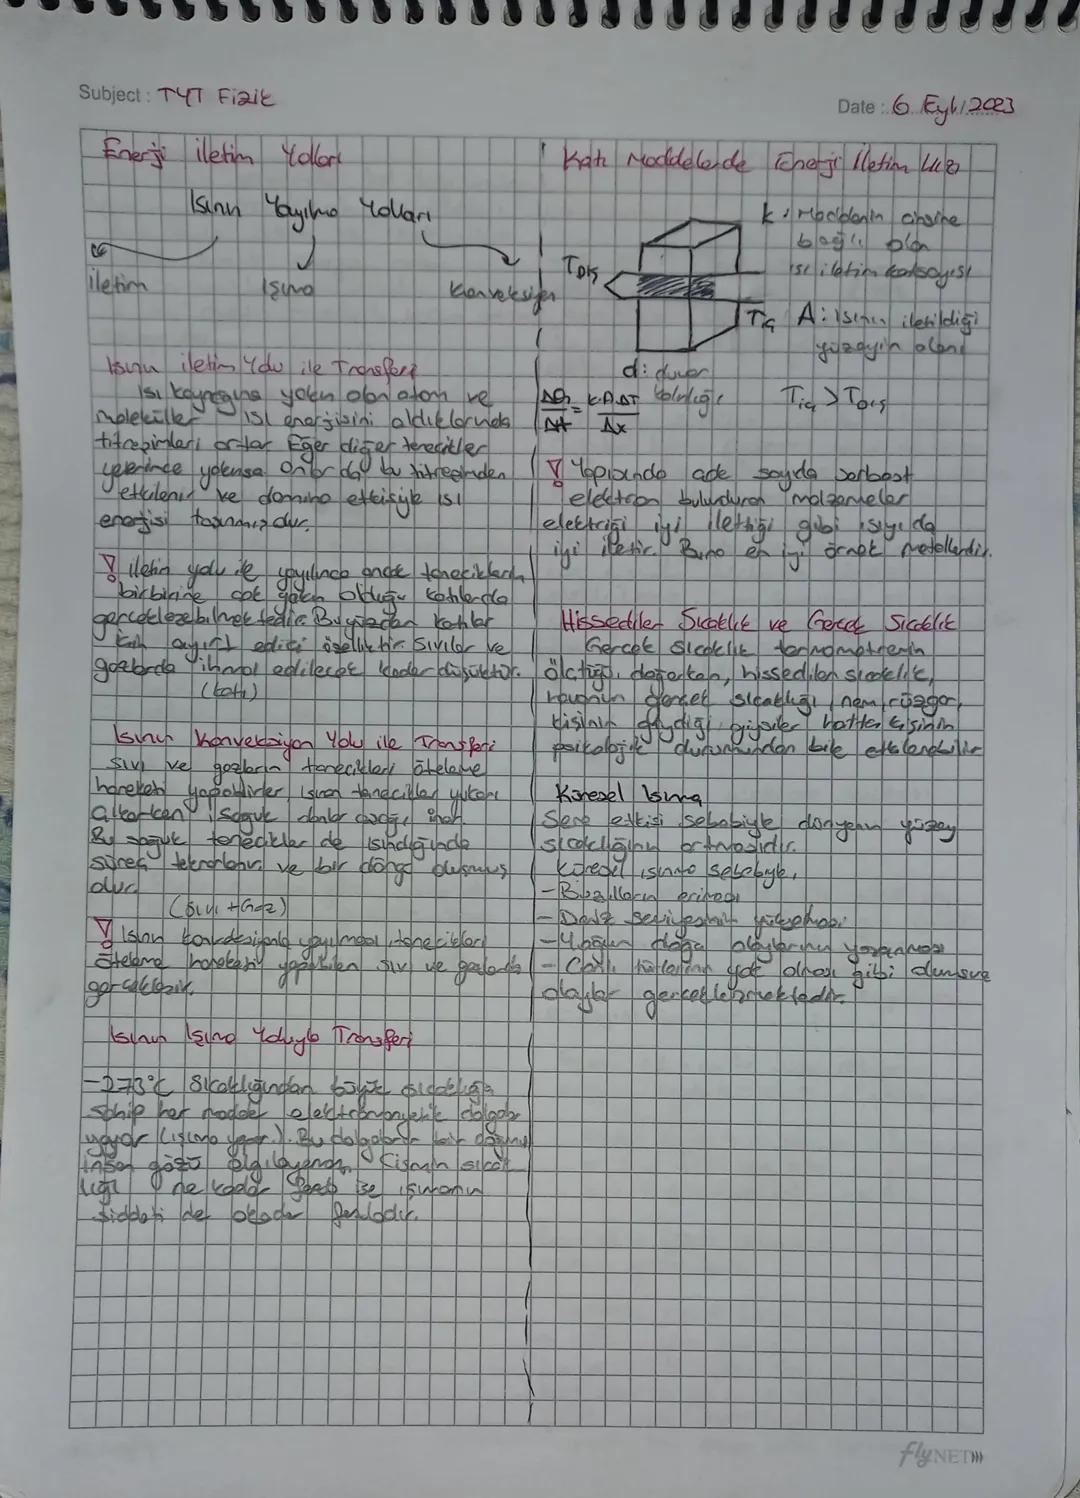 Subject : TYT Fizik
Date : 6 Eylül 2023
Enerji İletim Yolları
Isının Yayılma Yolları
İletim
Işıma
Konveksiyon
Isının İletim Yolu ile Transferi
Isı kaynağına yakın olan atom ve
moleküller ısı enerjisini aldıklarında
titreşimleri artar Eğer diğer tanecikler
yeterince yakınsa onlar da bu titreşimden
etkilenir ve domino etkisiyle ısı
enerjisi taşınmış olur.
! İletim yolu ile yayılma ancak taneciklerin
birbirine çok yakın olduğu katılarda
gerçekleşebilmektedir. Bu yüzden katılar
için ayırt edici özelliktir. Sıvılar ve
gazlarda ihmal edilecek kadar düşüktür.
(katı)
Isının Konveksiyon Yolu ile Transferi
Sıvı ve gazların tanecikleri öteleme
hareketi yapabilirler, ısınan tanecikler yukarı
çıkarken soğuk olanlar aşağı iner.
Bu soğuk tanecikler de ısındığında
süreç tekrarlanır ve bir döngü oluşmuş
olur.
(Sıvı + Gaz)
! Isının konveksiyonla yayılması tanecikleri
öteleme hareketi yapabilen sıvı ve gazlarda
gerçekleşir.
Isının Işıma Yoluyla Transferi
-273°C Sıcaklığından büyük sıcaklığa
sahip her madde elektromanyetik dalgalar
yayar (ışıma yapar). Bu dalgaların bir kısmını
insan gözü algılayamaz. Cismin sıcak
lığı ne kadar fazla ise ışımanın
şiddeti de o kadar fazladır.
Katı Maddelerde Enerji İletim Hızı
k : Maddenin cinsine
bağlı olan
ısı iletim katsayısı
Tdış
Tiç
A : Isının iletildiği
yüzeyin alanı
d : duvar
kalınlığı
Tiç > Tdış
ΔQ/Δt = k.A.ΔT/Δx
! Yapısında çok sayıda serbest
elektron bulunduran malzemeler
elektriği iyi ilettiği gibi ısıyı da
iyi iletir. Buna en iyi örnek metallerdir.
Hissedilen Sıcaklık ve Gerçek Sıcaklık
Gerçek sıcaklık termometrenin
ölçtüğü değerken, hissedilen sıcaklık,
havanın gerçek sıcaklığı, nem, rüzgar,
kişinin giydiği giysiler hatta kişinin
psikolojik durumundan bile etkilenebilir
Küresel Isınma
Sera etkisi sebebiyle dünyanın yüzey
sıcaklığının artmasıdır.
Küresel ısınma sebebiyle,
- Buzulların erimesi
- Deniz seviyesinin yükselmesi
- Yoğun doğa olaylarının yaşanması
- Canlı türlerinin yok olması gibi olumsuz
olaylar gerçekleşmektedir.
flyNET